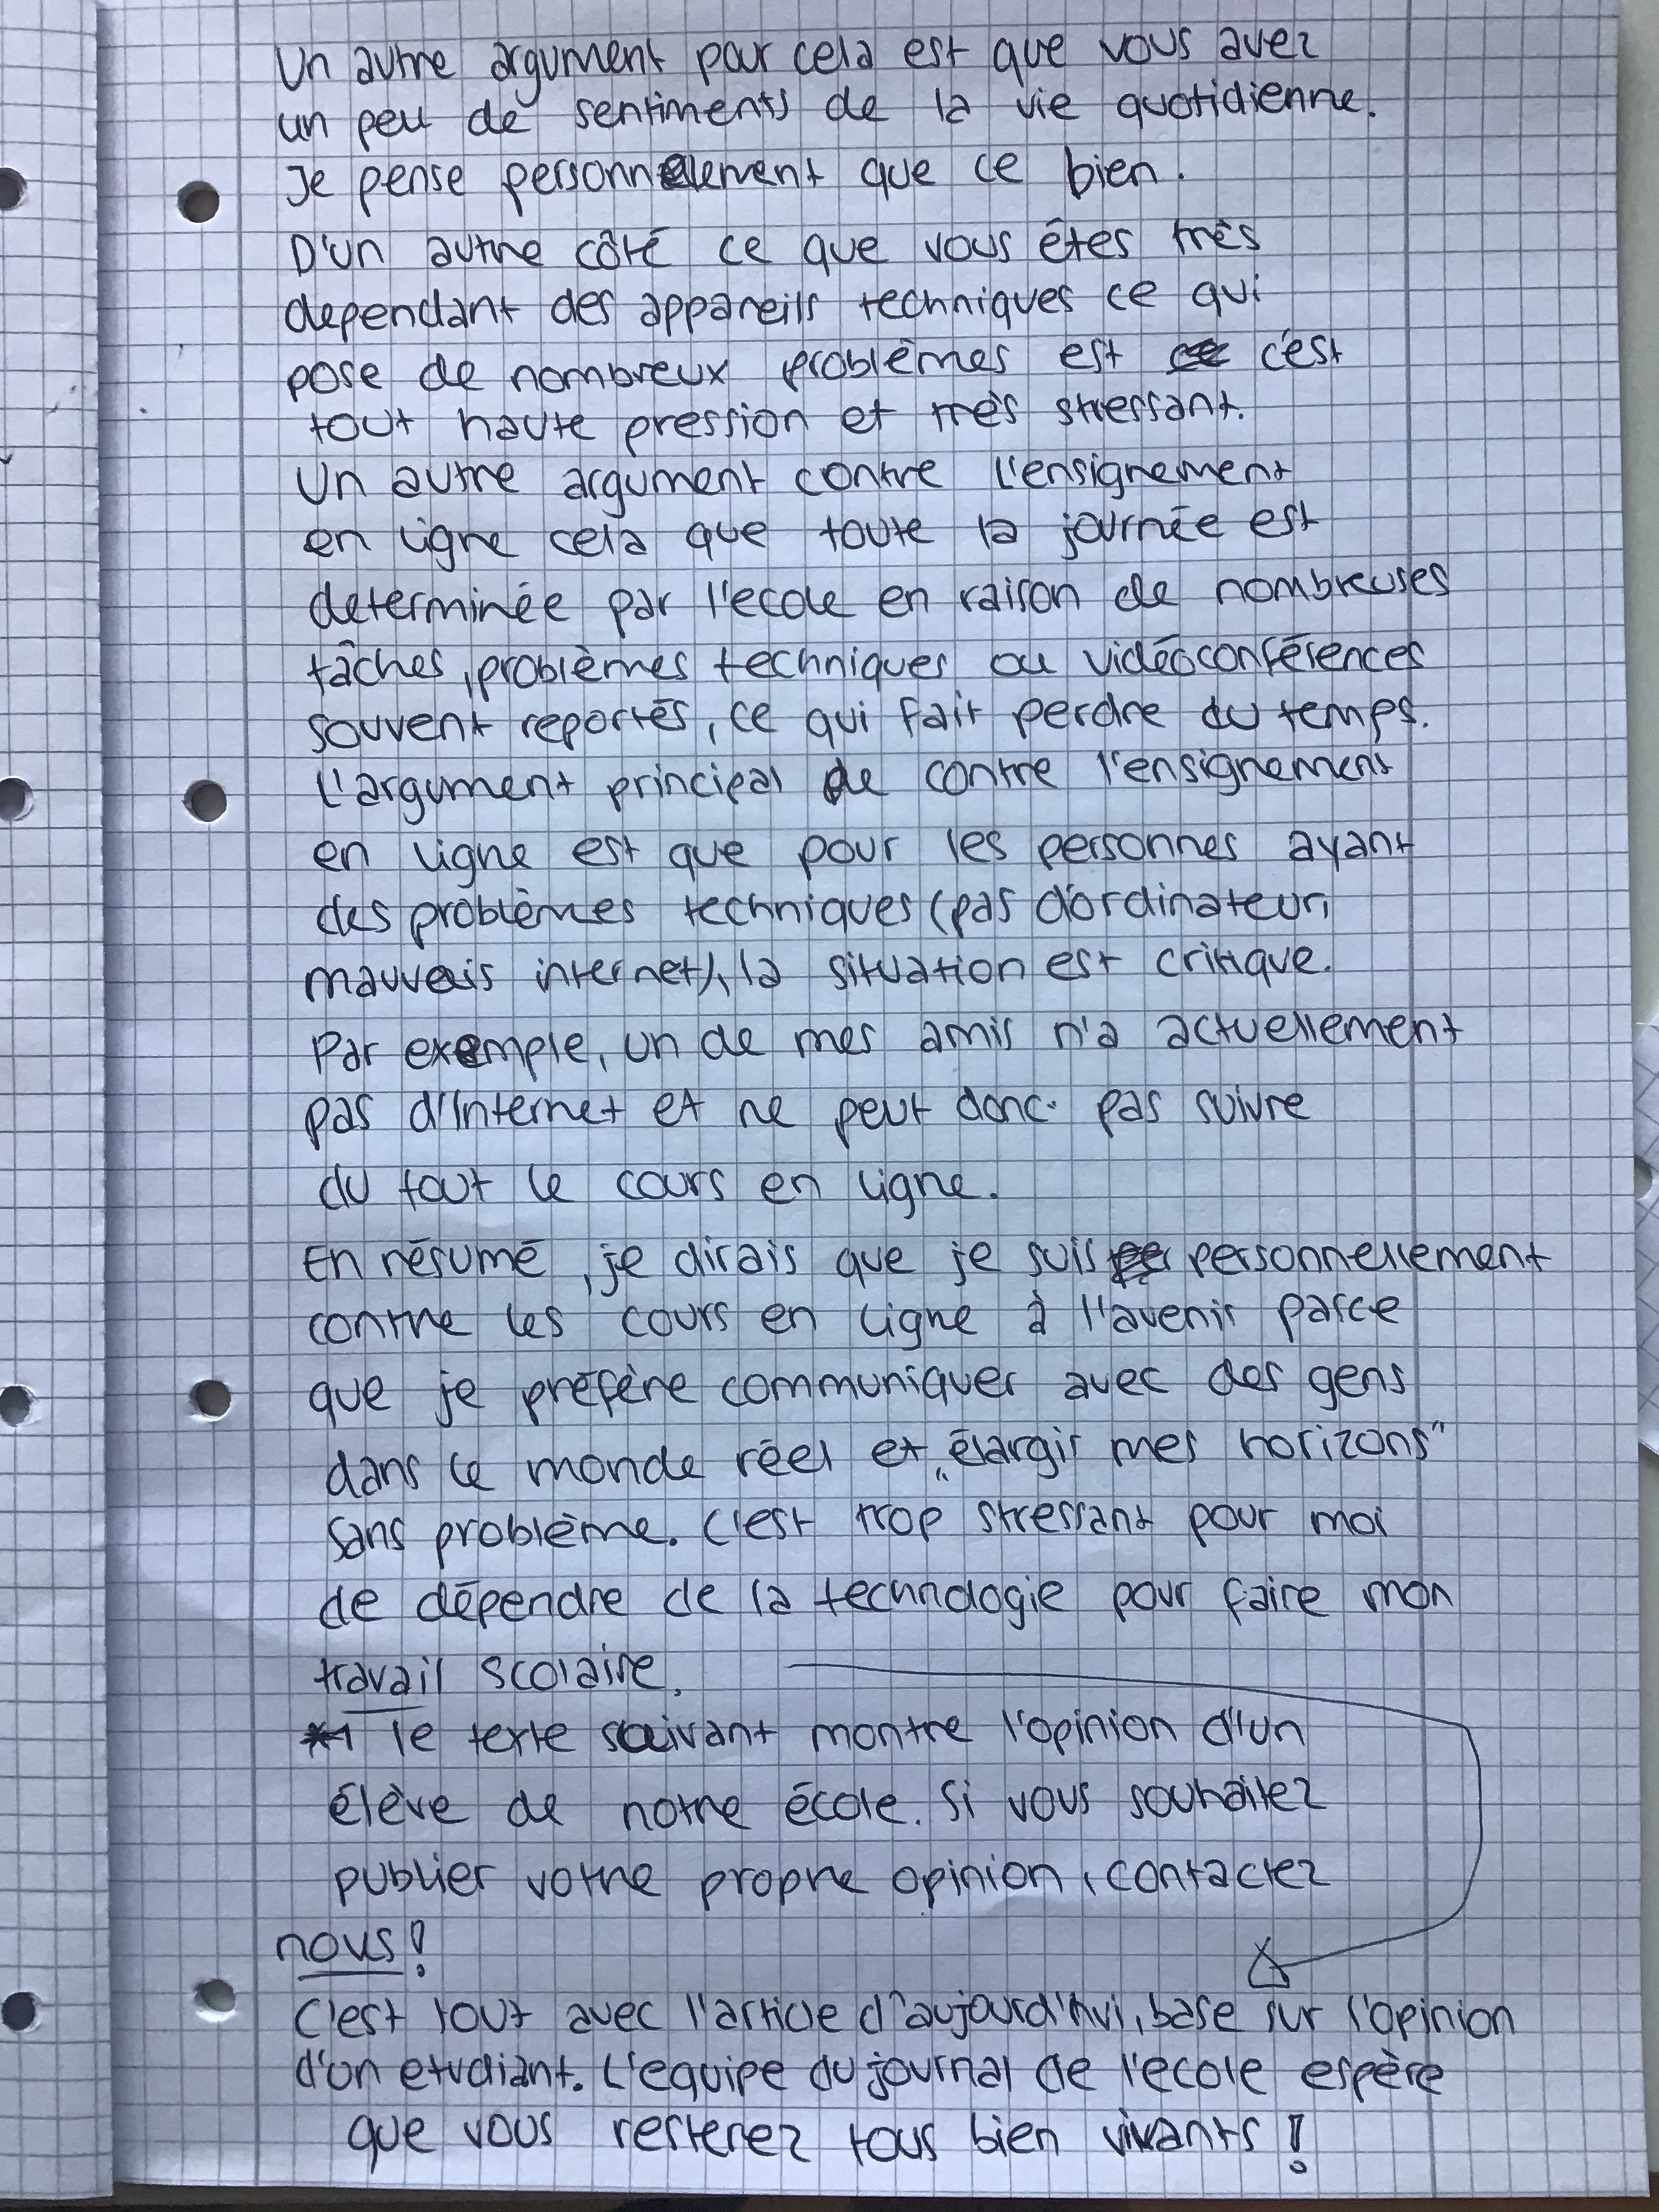 Un autre argument pour cela est que vous avez
un peu de sentiments de la vie quotidienne.
Je pense personnelement que ce bien.
D'un autre côté ce que vous êtes très
dependant des appareils techniques ce qui
pose de nombreux problèmes est c'est
tout haute pression et très stressant.
Un autre argument contre l'ensignement
en ligne cela que toute la journée est
determinée par l'ecole en raison de nombreuses
tâches, problèmes techniques ou vidéoconférences
souvent reportés, ce qui fait perdre du temps.
L'argument principal de contre l'ensignement
en ligne est que pour les personnes ayant
des problèmes techniques (pas d'ordinateur,
mauvais internet), la situation est critique.
Par exemple, un de mes amis n'a actuellement
pas d'Internet et ne peut donc pas suivre
du tout le cours en ligne.
En résumé, je dirais que je suis personnellement
contre les cours en ligne à l'avenir parce
que je préfère communiquer avec des gens
dans le monde réel et „élargir mes horizons"
sans problème. C'est trop stressant pour moi
de dépendre de la technologie pour faire mon
travail scolaire.
*1 le texte suivant montre l'opinion d'un
élève de notre école. Si vous souhaitez
publier votre propre opinion, contactez
nous!
C'est tout avec l'article d'aujourd'hui, base sur l'opinion
d'un etudiant. L'equipe du journal de l'ecole espère
que vous resterez tous bien vivants!